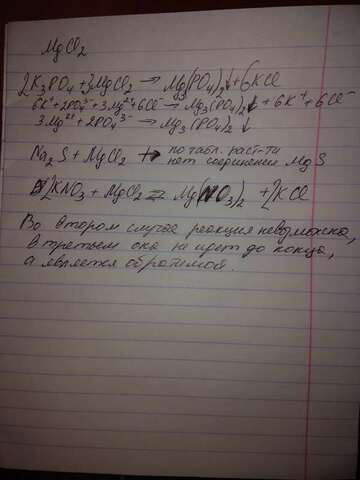 MgCl2
2K3PO4 + 3MgCl2 → Mg3(PO4)2↓ + 6KCl
6K⁺ + 2PO4³⁻ + 3Mg²⁺ + 6Cl⁻ → Mg3(PO4)2↓ + 6K⁺ + 6Cl⁻
3Mg²⁺ + 2PO4³⁻ → Mg3(PO4)2↓
Na2S + MgCl2 ↛ по табл. раст-ти
нет соединения MgS
2KNO3 + MgCl2 ⇄ Mg(NO3)2 + 2KCl
Во втором случае реакция невозможна,
в третьем она не идет до конца,
а является обратимой.